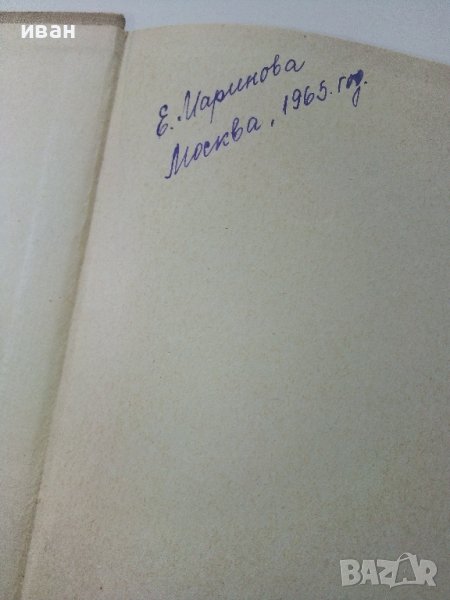 иван
Е. Маринова
Москва, 1965. год.
BAZAR